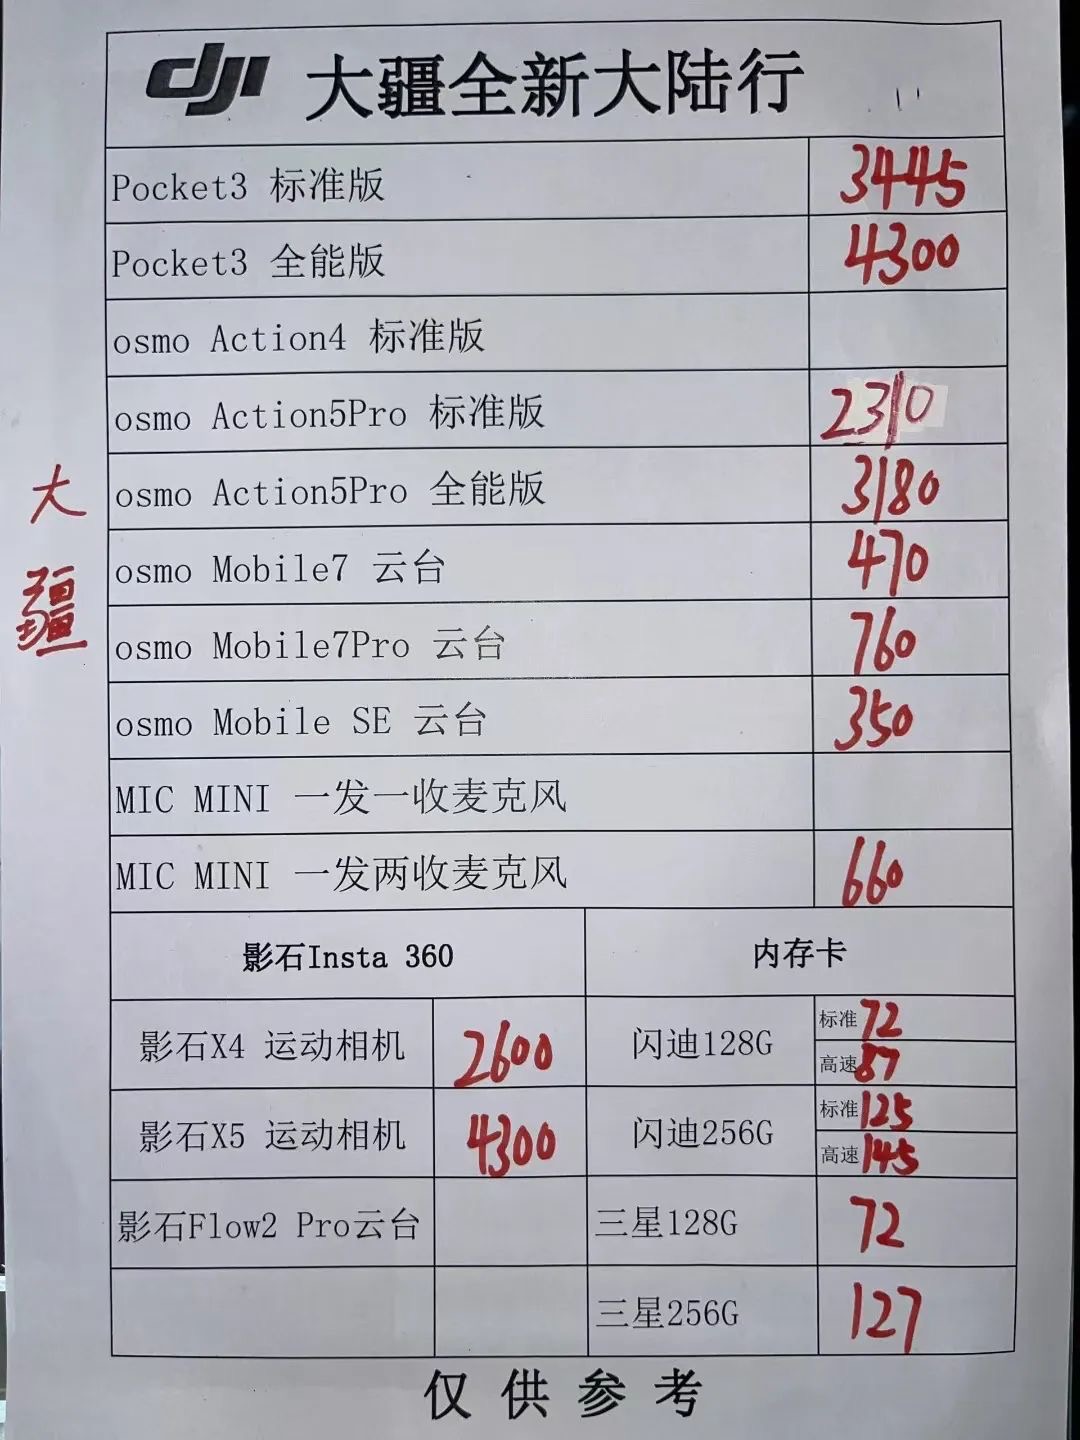 dji 大疆全新大陆行
Pocket3 标准版 3445
Pocket3 全能版 4300
osmo Action4 标准版
osmo Action5Pro 标准版 2310
osmo Action5Pro 全能版 3180
osmo Mobile7 云台 470
osmo Mobile7Pro 云台 760
osmo Mobile SE 云台 350
MIC MINI 一发一收麦克风
MIC MINI 一发两收麦克风 660
大
疆
影石Insta 360 内存卡
影石X4 运动相机 2600 闪迪128G 标准 72
高速 87
影石X5 运动相机 4300 闪迪256G 标准 125
高速 145
影石Flow2 Pro云台 三星128G 72
三星256G 127
仅供参考